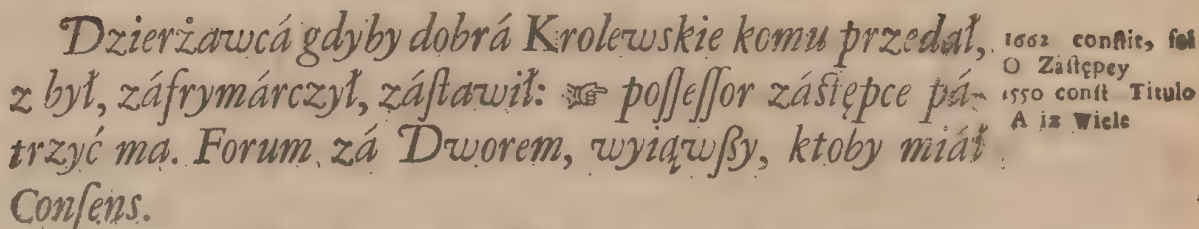 Dzierżawcá gdyby dobrá Krolewskie komu przedał,
z był, záfrymárczył, záſtawił: ☞ poſſeſſor záſtępce pá-
trzyć ma. Forum zá Dworem, wyiąwſſy, ktoby miáł
Conſens.
1662 conſtit, fol
O Zaſtępcy
1550 conſt Titulo
A iz Wiele